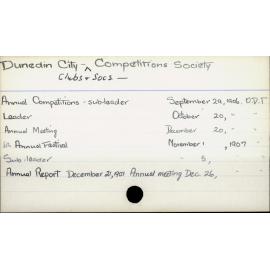 Dunedin City - ^ Competitions Society
Clubs & Socs —
Annual Competitions - sub-leader September 29, 1906. O.D.T
Leader October 20, - "
Annual Meeting December 20, - "
1st Annual Festival November 1, 1907 "
Sub-leader " 5, "
Annual Report December 21, 1901 Annual meeting Dec. 26, "